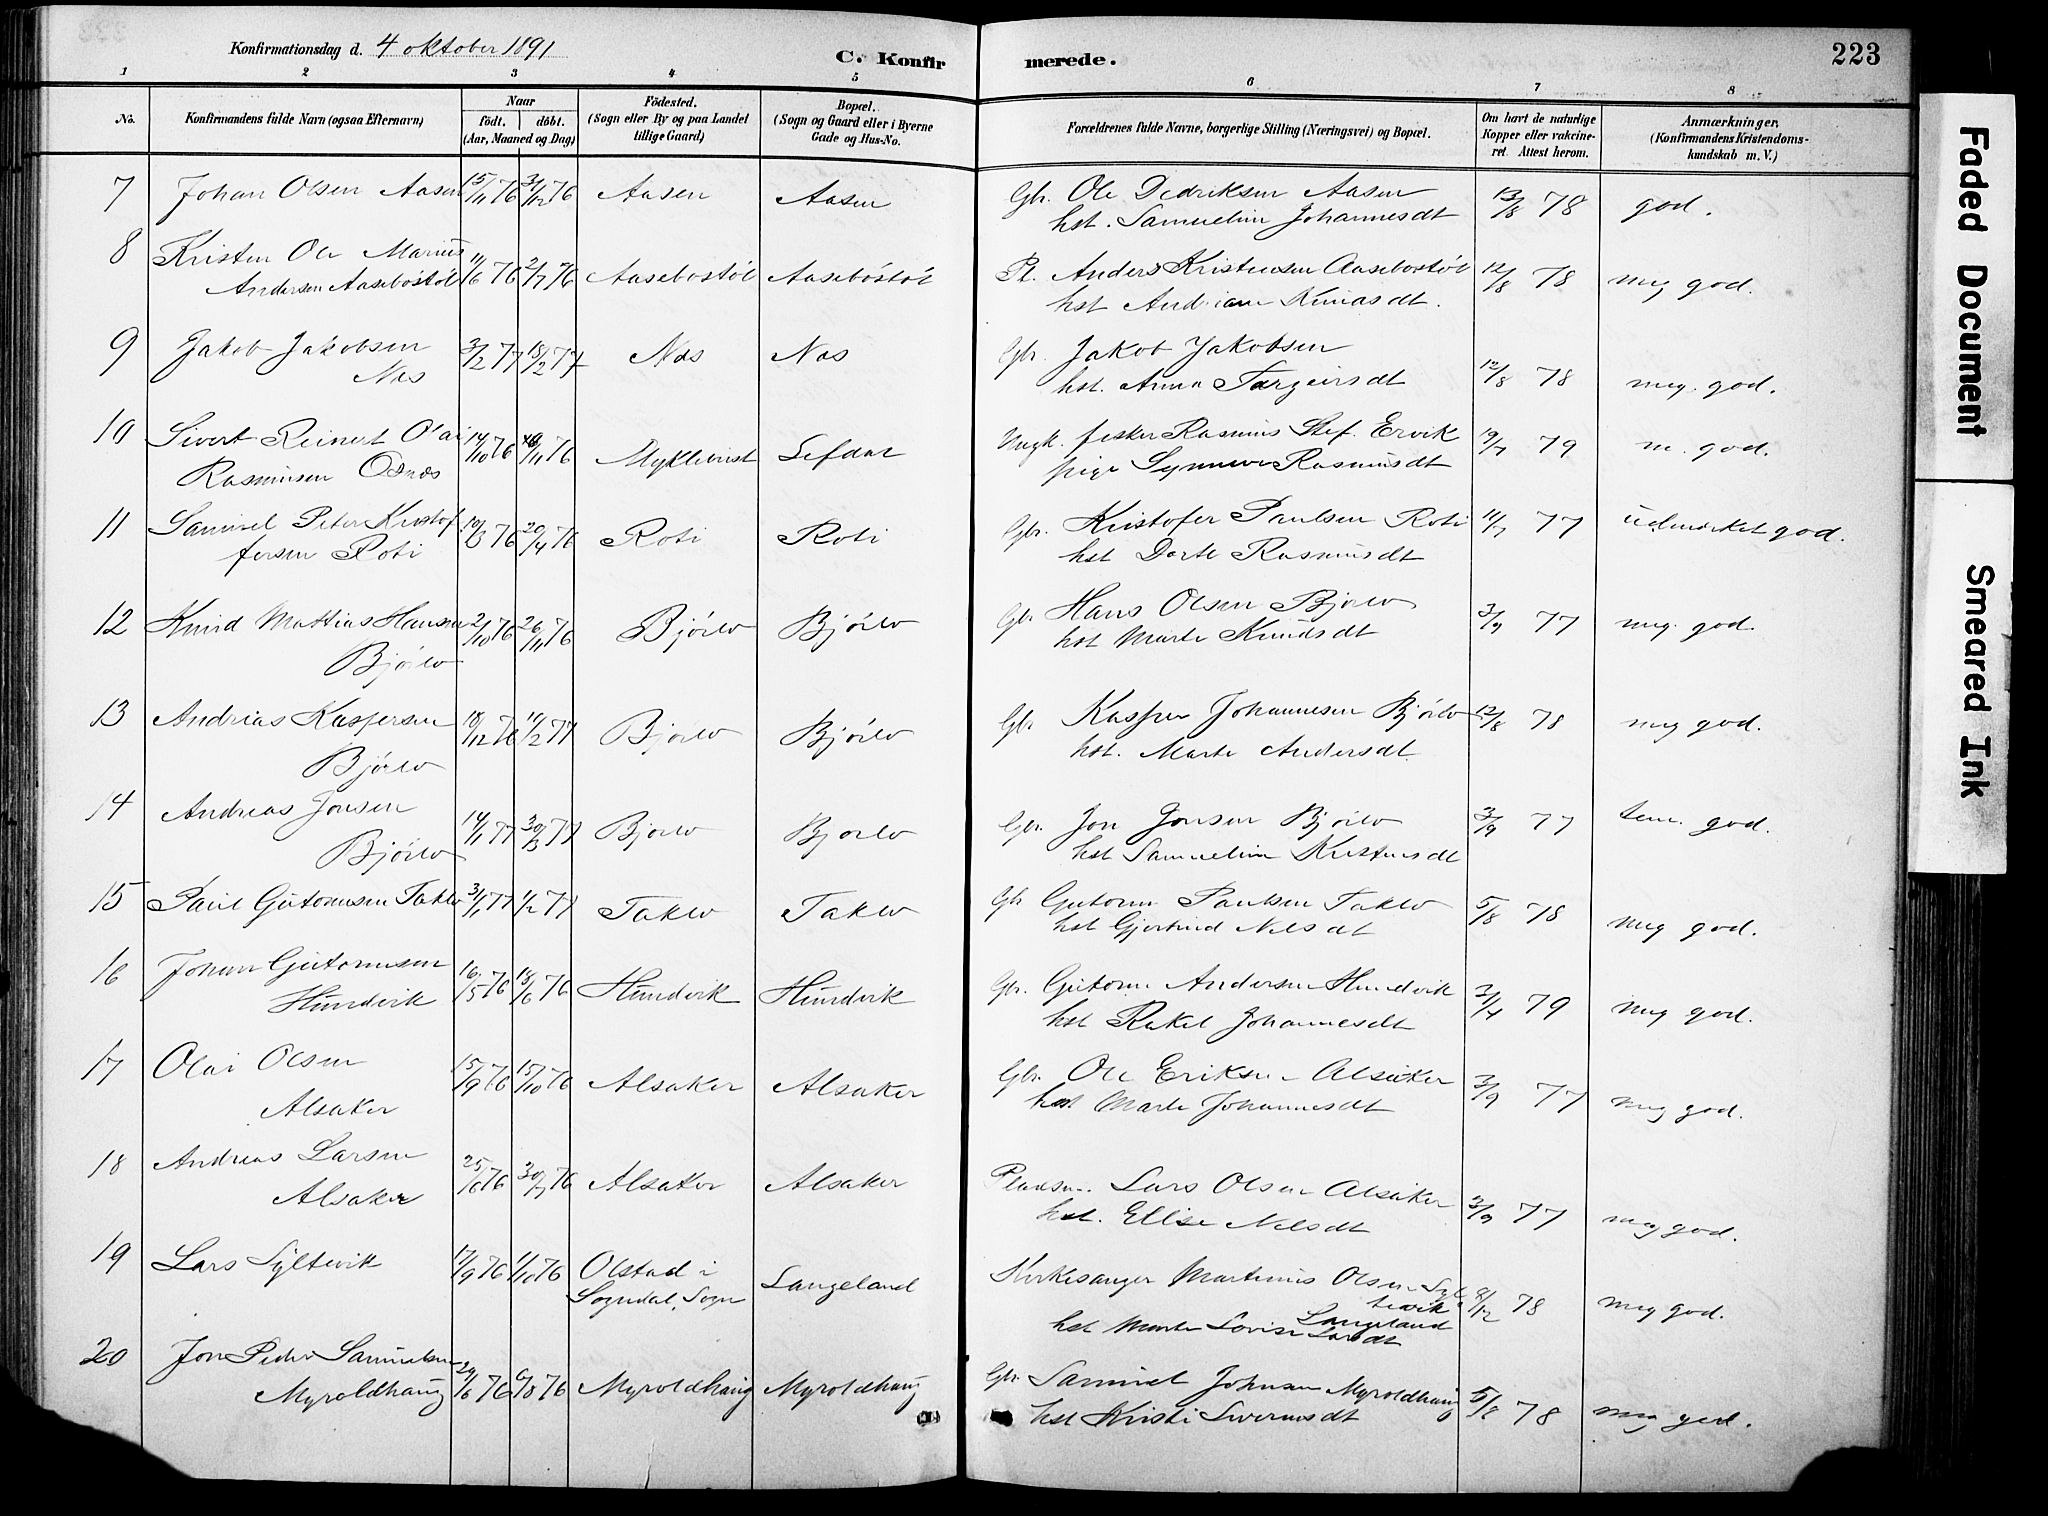 Konfirmationsdag d. 4 oktober 1891
C. Konfirmerede.
223
1 2 3 4 5 6 7 8
No.
Konfirmandens fulde Navn (ogsaa Efternavn)
Naar
födt. döbt.
(Aar, Maaned og Dag)
Födested.
(Sogn eller By og paa Landet
tillige Gaard)
Bopæl.
(Sogn og Gaard eller i Byerne
Gade og Hus-No.
Forældrenes fulde Navne, borgerlige Stilling (Næringsvei) og Bopæl.
Om havt de naturlige
Kopper eller vakcine-
ret Attest herom.
Anmærkninger,
(Konfirmandens Kristendoms-
kundskab m. V.)
7 Johan Olsen Aasen 15/11 76 31/12 76 Aasen Aasen Gbr. Ole Dedriksen Aasen 13/8 78 god.
hst. Samueline Johannesdt
8 Kristen Ole Marius 11/6 76 2/7 76 Pl. Anders Kristensen Aasebøstøl 12/8 78
Andersen Aasebøstøl Aasebøstøl Aasebøstøl hst Andriane Knutsdt. meg god.
9 Jakob Jakobsen 3/2 77 18/2 77 Nos Nos Gbr. Jakob Jakobsen
Nos hst. Anna Torgeirsdt 12/8 78 meg. god.
10 Sivert Reinert Olai 14/10 76 /11 76 Ungk. fisker Rasmus Stef. Ervik 19/7 79 m. god.
Rasmusen Osnes Myklebust Lefdal pige Synneve Rasmusdt
11 Samuel Peter Kristof 10/3 76 20/4 76 Roti Roti Gbr. Kristofer Paulsen Roti 11/7 77 udmerket god.
fersen Roti hst Dorte Rasmusdt
12 Knud Mattias Hansen 2/10 76 26/11 76 Bjørlo Bjørlo Gb. Hans Olsen Bjørlo 3/9 77 meg. god.
Bjørlo hst Marte Knudsdt
13 Andrias Kaspersen 18/12 76 11/2 77 Bjørlo Bjørlo Gbr Kasper Johannesen Bjørlo 12/8 78 meg god.
Bjørlo hst. Marte Andersdt.
14 Andreas Jonsen 14/1 77 30/3 77 Bjørlo Bjorlo Gbr. Jon Jonsen Bjørlo 3/9 77 tem. god.
Bjørlo hst Samueline Kristensdt
15 Paul Gutormsen Taklo 3/1 77 1/2 77 Taklo Taklo Gb Gutorm Paulsen Taklo 5/8 78 meg god.
hst Gjertrud Nelsdt
16 Johan Gutormsen 16/5 76 18/6 76 Hundvik Hundvik Gbr. Gutorm Andersen Hundvik 3/4 79 meg god.
Hundvik hst Rakel Johannesdt
17 Olai Olsen 15/9 76 15/10 76 Alsaker Alsaker Gbr. Ole Eriksen Alsaker 3/9 77 meg god.
Alsaker hst Marte Johannesdt
18 Andreas Larsen 25/6 76 30/7 76 Alsaker Alsaker Pladsm. Lars Olsen Alsaker 3/9 77 meg god.
Alsaker hst. Ellise Nelsdt
19 Lars Syltevik 17/9 76 1/10 76 Olstad i Langeland Kirkesanger Martinus Olsen Syl 8/12 78 meg god.
Sogndal, Sogn tevik
Langeland
hst Marte Lovise Larsdt
20 Jon Peder Samuelsen 29/6 76 6/8 76 Myroldhaug Myroldhaug Gbr Samuel Johnsen Myroldhaug 5/8 78 meg god.
Myroldhaug hst Kristi Siversdt
Faded Document
Smeared Ink